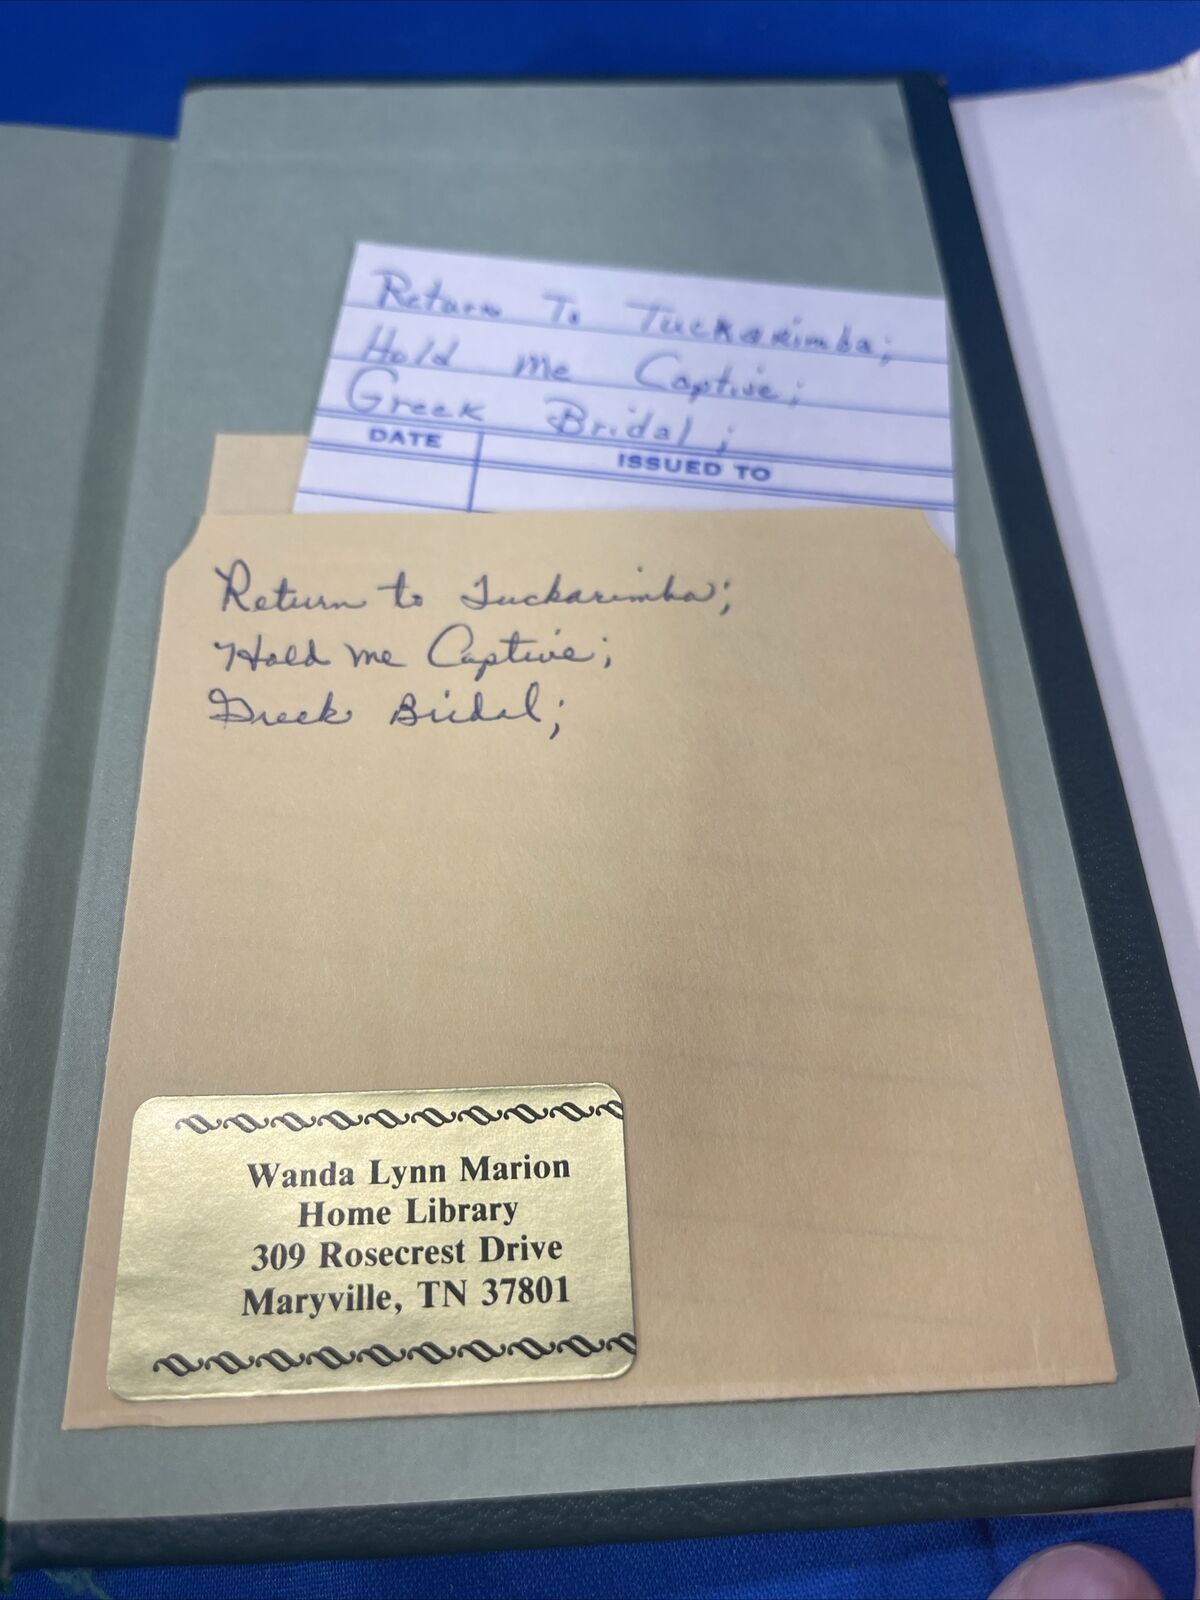 Return To Tuckarimba;
Hold Me Captive;
Greek Bridal;
DATE
ISSUED TO
Return to Tuckarimba;
Hold me Captive;
Greek Bridal;
Wanda Lynn Marion
Home Library
309 Rosecrest Drive
Maryville, TN 37801